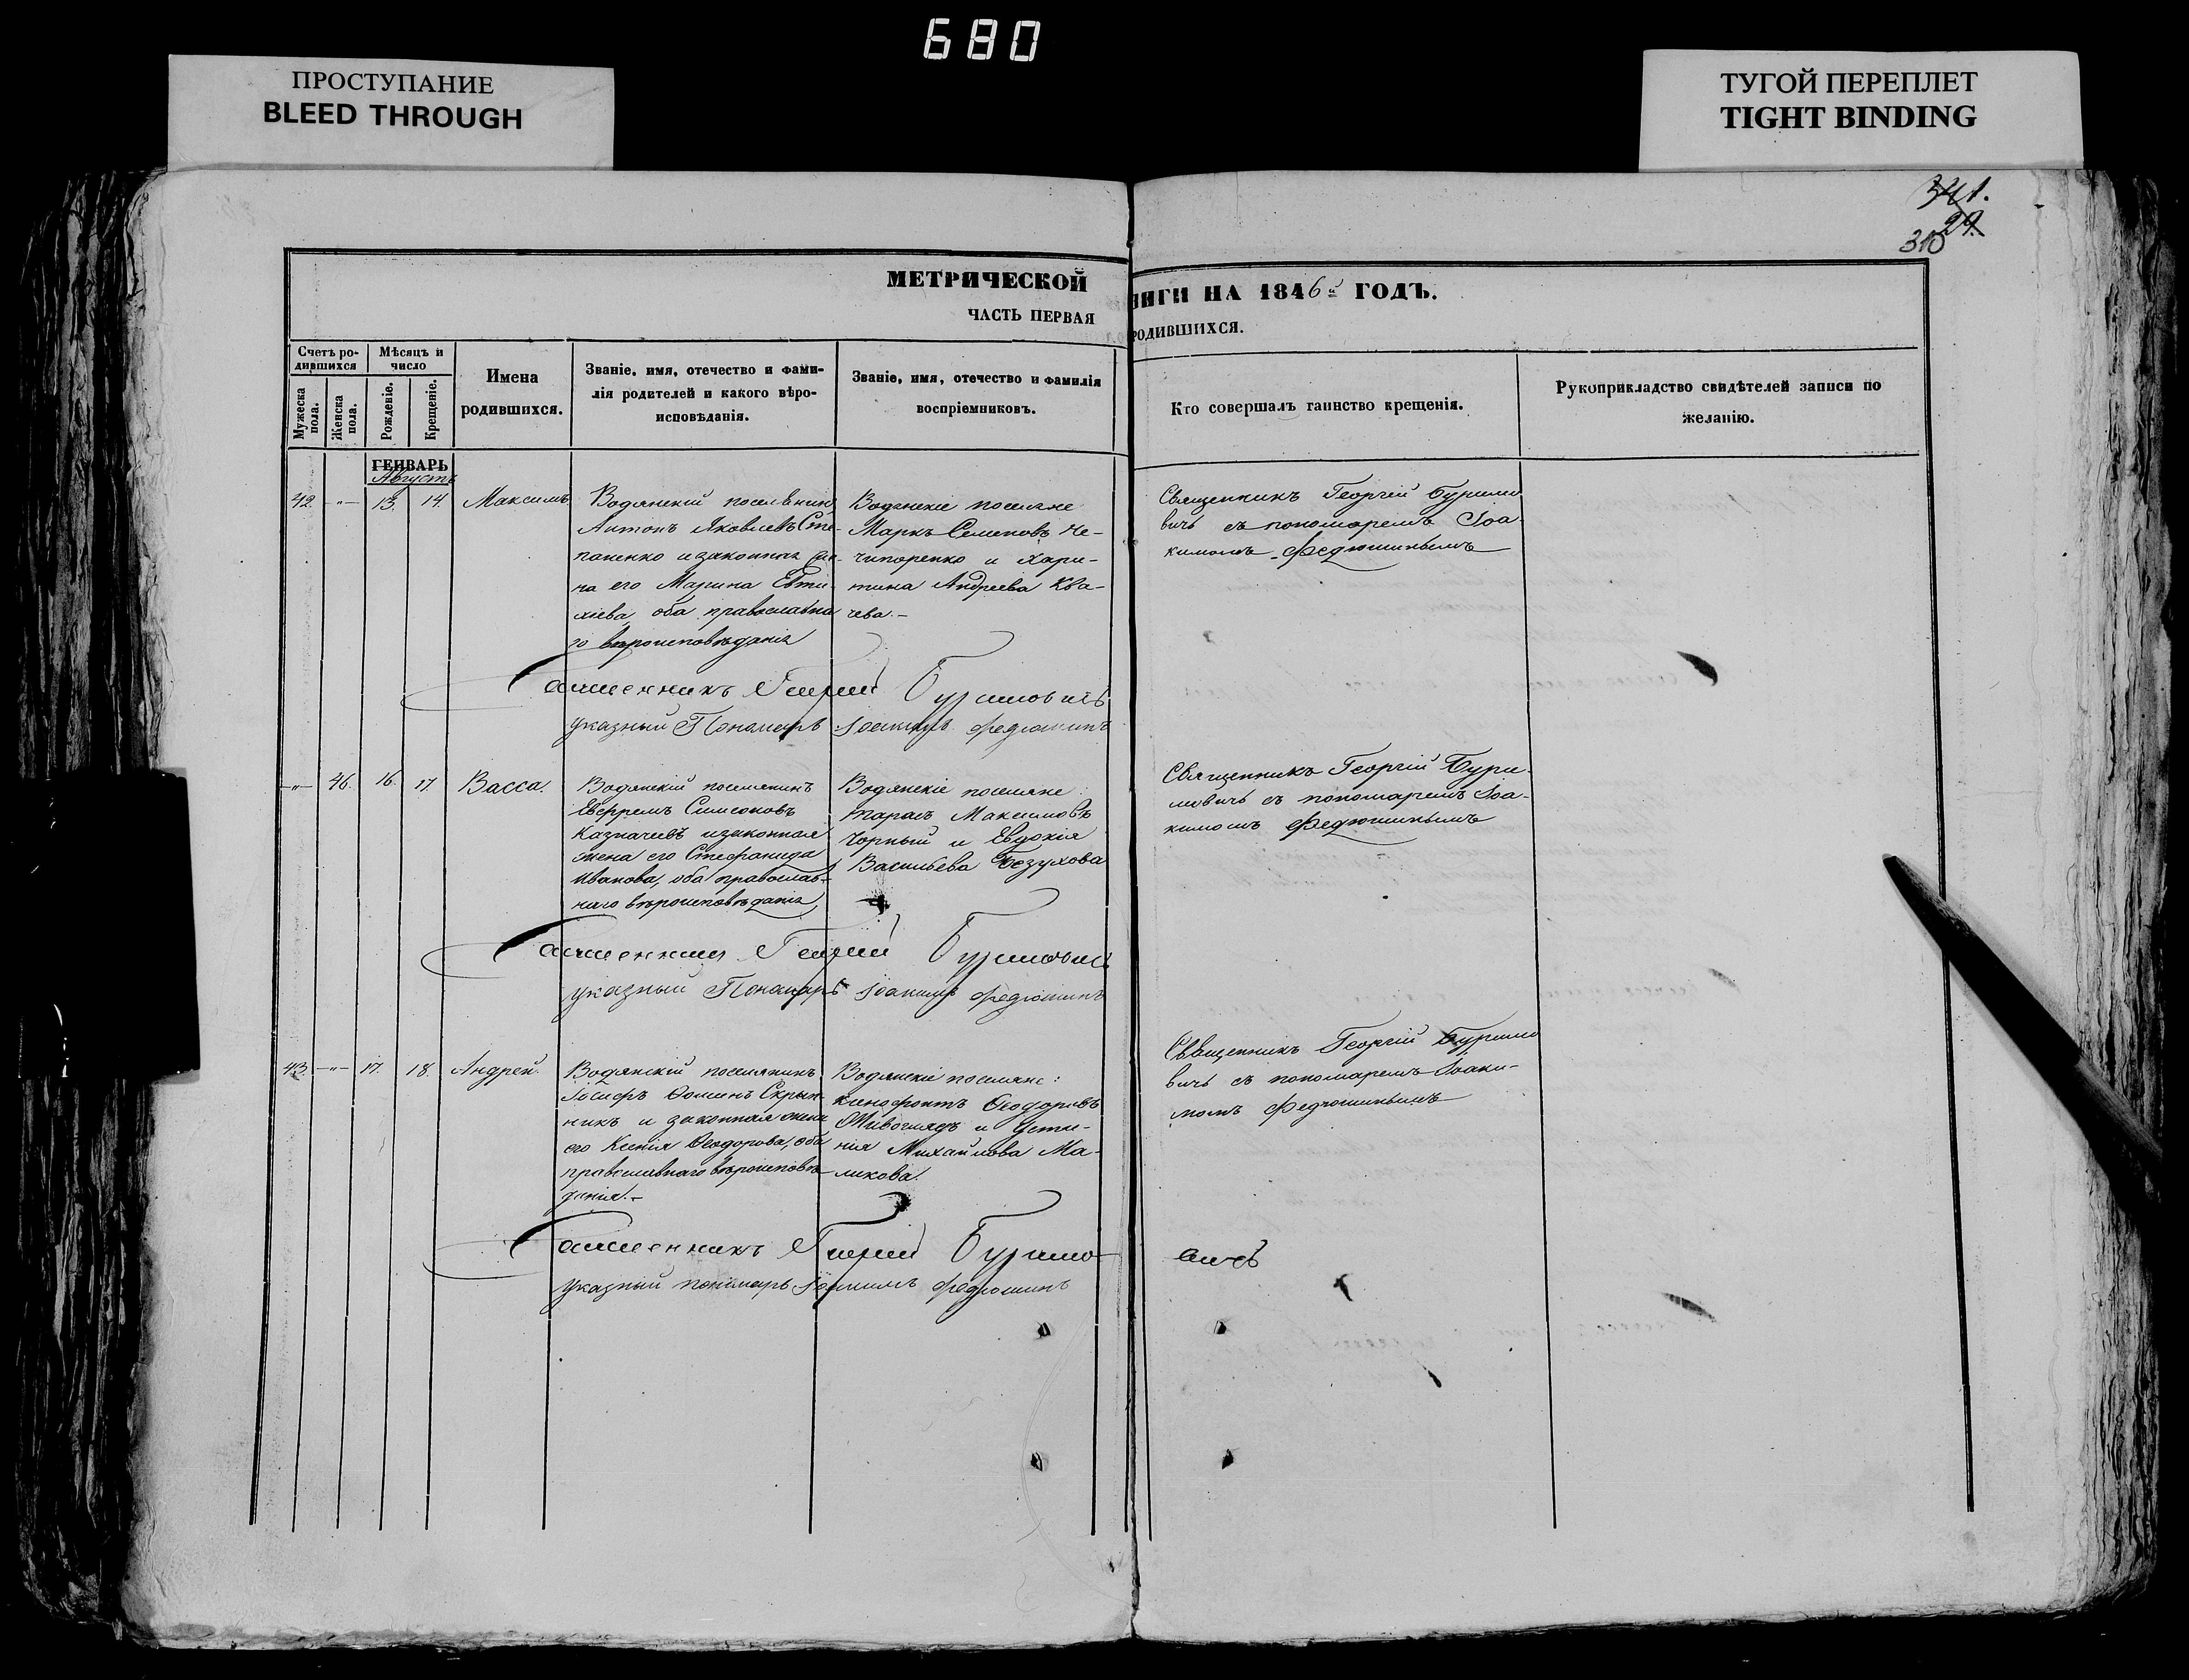 680
ПРОСТУПАНИЕ
BLEED THROUGH
ТУГОЙ ПЕРЕПЛЕТ
TIGHT BINDING
341.
29.
310
МЕТРИЧЕСКОЙ
ЧАСТЬ ПЕРВАЯ
НИГИ НА 1846й ГОДЪ.
РОДИВШИХСЯ.
Счетъ ро-
дившихся
Мужеска
пола.
Женска
пола.
Мѣсяцъ и
число
Рожденіе.
Крещеніе.
Имена
родившихся.
Званіе, имя, отечество и фами-
лія родителей и какого вѣро-
исповѣданія.
Званіе, имя, отечество и фамилія
воспріемниковъ.
Кто совершалъ таинство крещенія.
Рукоприкладство свидѣтелей записи по
желанію.
ГЕНВАРЬ
Августъ
42. -"- 13. 14. Максимъ
Водянскій поселянинъ
Антонъ Яковлевъ Сте-
паненко и законная же-
на его Марина Евти-
хіева, оба православна
го вѣроисповѣданія
Водянскіе поселяне
Маркъ Семеновъ Не-
чипоренко и Хари-
тина Андреева Ква-
чева.-
Священникъ Георгій Буримо
вичь съ пономаремъ Іоа-
кимомъ Федюшинымъ
Священникъ Георгій Буримовичь
указный Пономарь Іоакимъ Федюшинъ
-"- 46. 16. 17. Васса.
Водянскій поселянинъ
Евфремъ Симеоновъ
Казначеевъ и законная
жена его Стефанида
Иванова, оба православ-
наго вѣроисповѣданія
Водянскіе поселяне:
Тарасъ Максимовъ
Чорный и Евдокія
Васильева Безухова
Священникъ Георгій Бури-
мовичь съ пономаремъ Іоа-
кимомъ Федюшинымъ
Священникъ Георгій Буримовичь
указный Пономарь Іоакимъ Федюшинъ
43. -"- 17. 18. Андрей.
Водянскій поселянинъ
Іосифъ Ѳоминъ Скрын-
никъ и законная жена
его Ксенія Ѳеодорова, оба
православнаго вѣроисповѣ-
данія.-
Водянскіе поселяне:
Ксенофонтъ Ѳеодоровъ
Живоглядъ и Усти-
нія Михайлова Ма-
ликова.
Священникъ Георгій Буримо
вичь съ пономаремъ Іоаки-
момъ Федюшинымъ
Священникъ Георгій Буримо-
вичь
указный пономарь Іоакимъ Федюшинъ